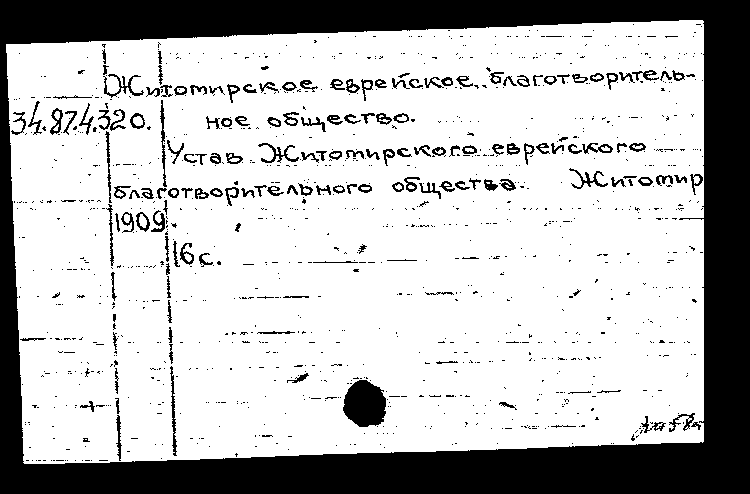 Житомирское еврейское благотворитель-
34.87.4.320. ное общество.
Устав Житомирского еврейского
благотворительного общества. Житомир
1909.
16 с.